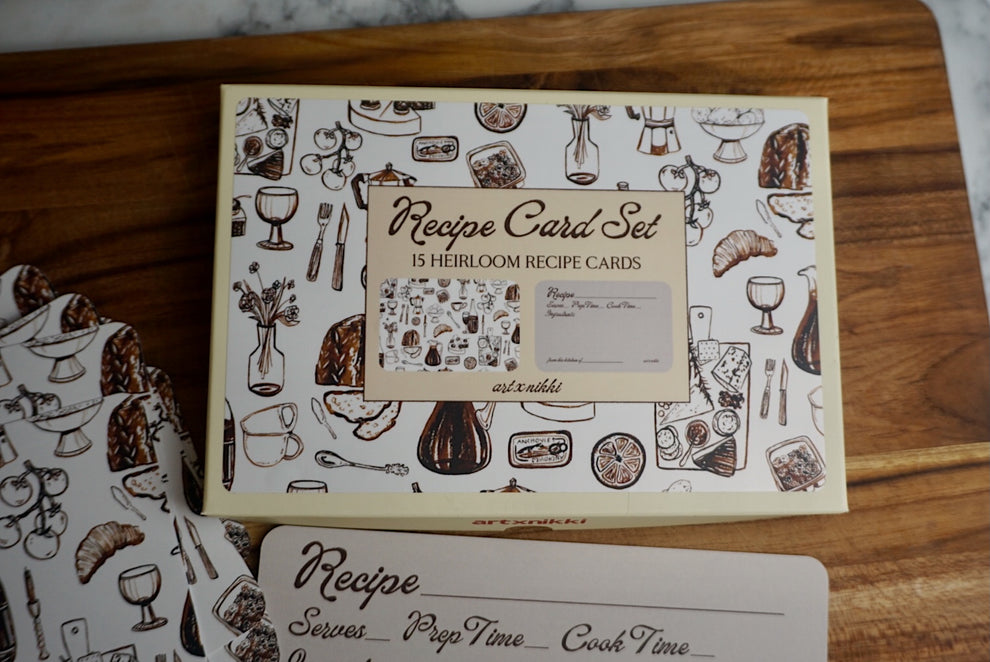 Recipe Card Set
15 HEIRLOOM RECIPE CARDS
Recipe
Serves__ Prep Time__ Cook Time__
Ingredients
from the kitchen of
artxnikki
artxnikki
ANCHOVIE
artxnikki
Recipe
Serves__ Prep Time__ Cook Time__